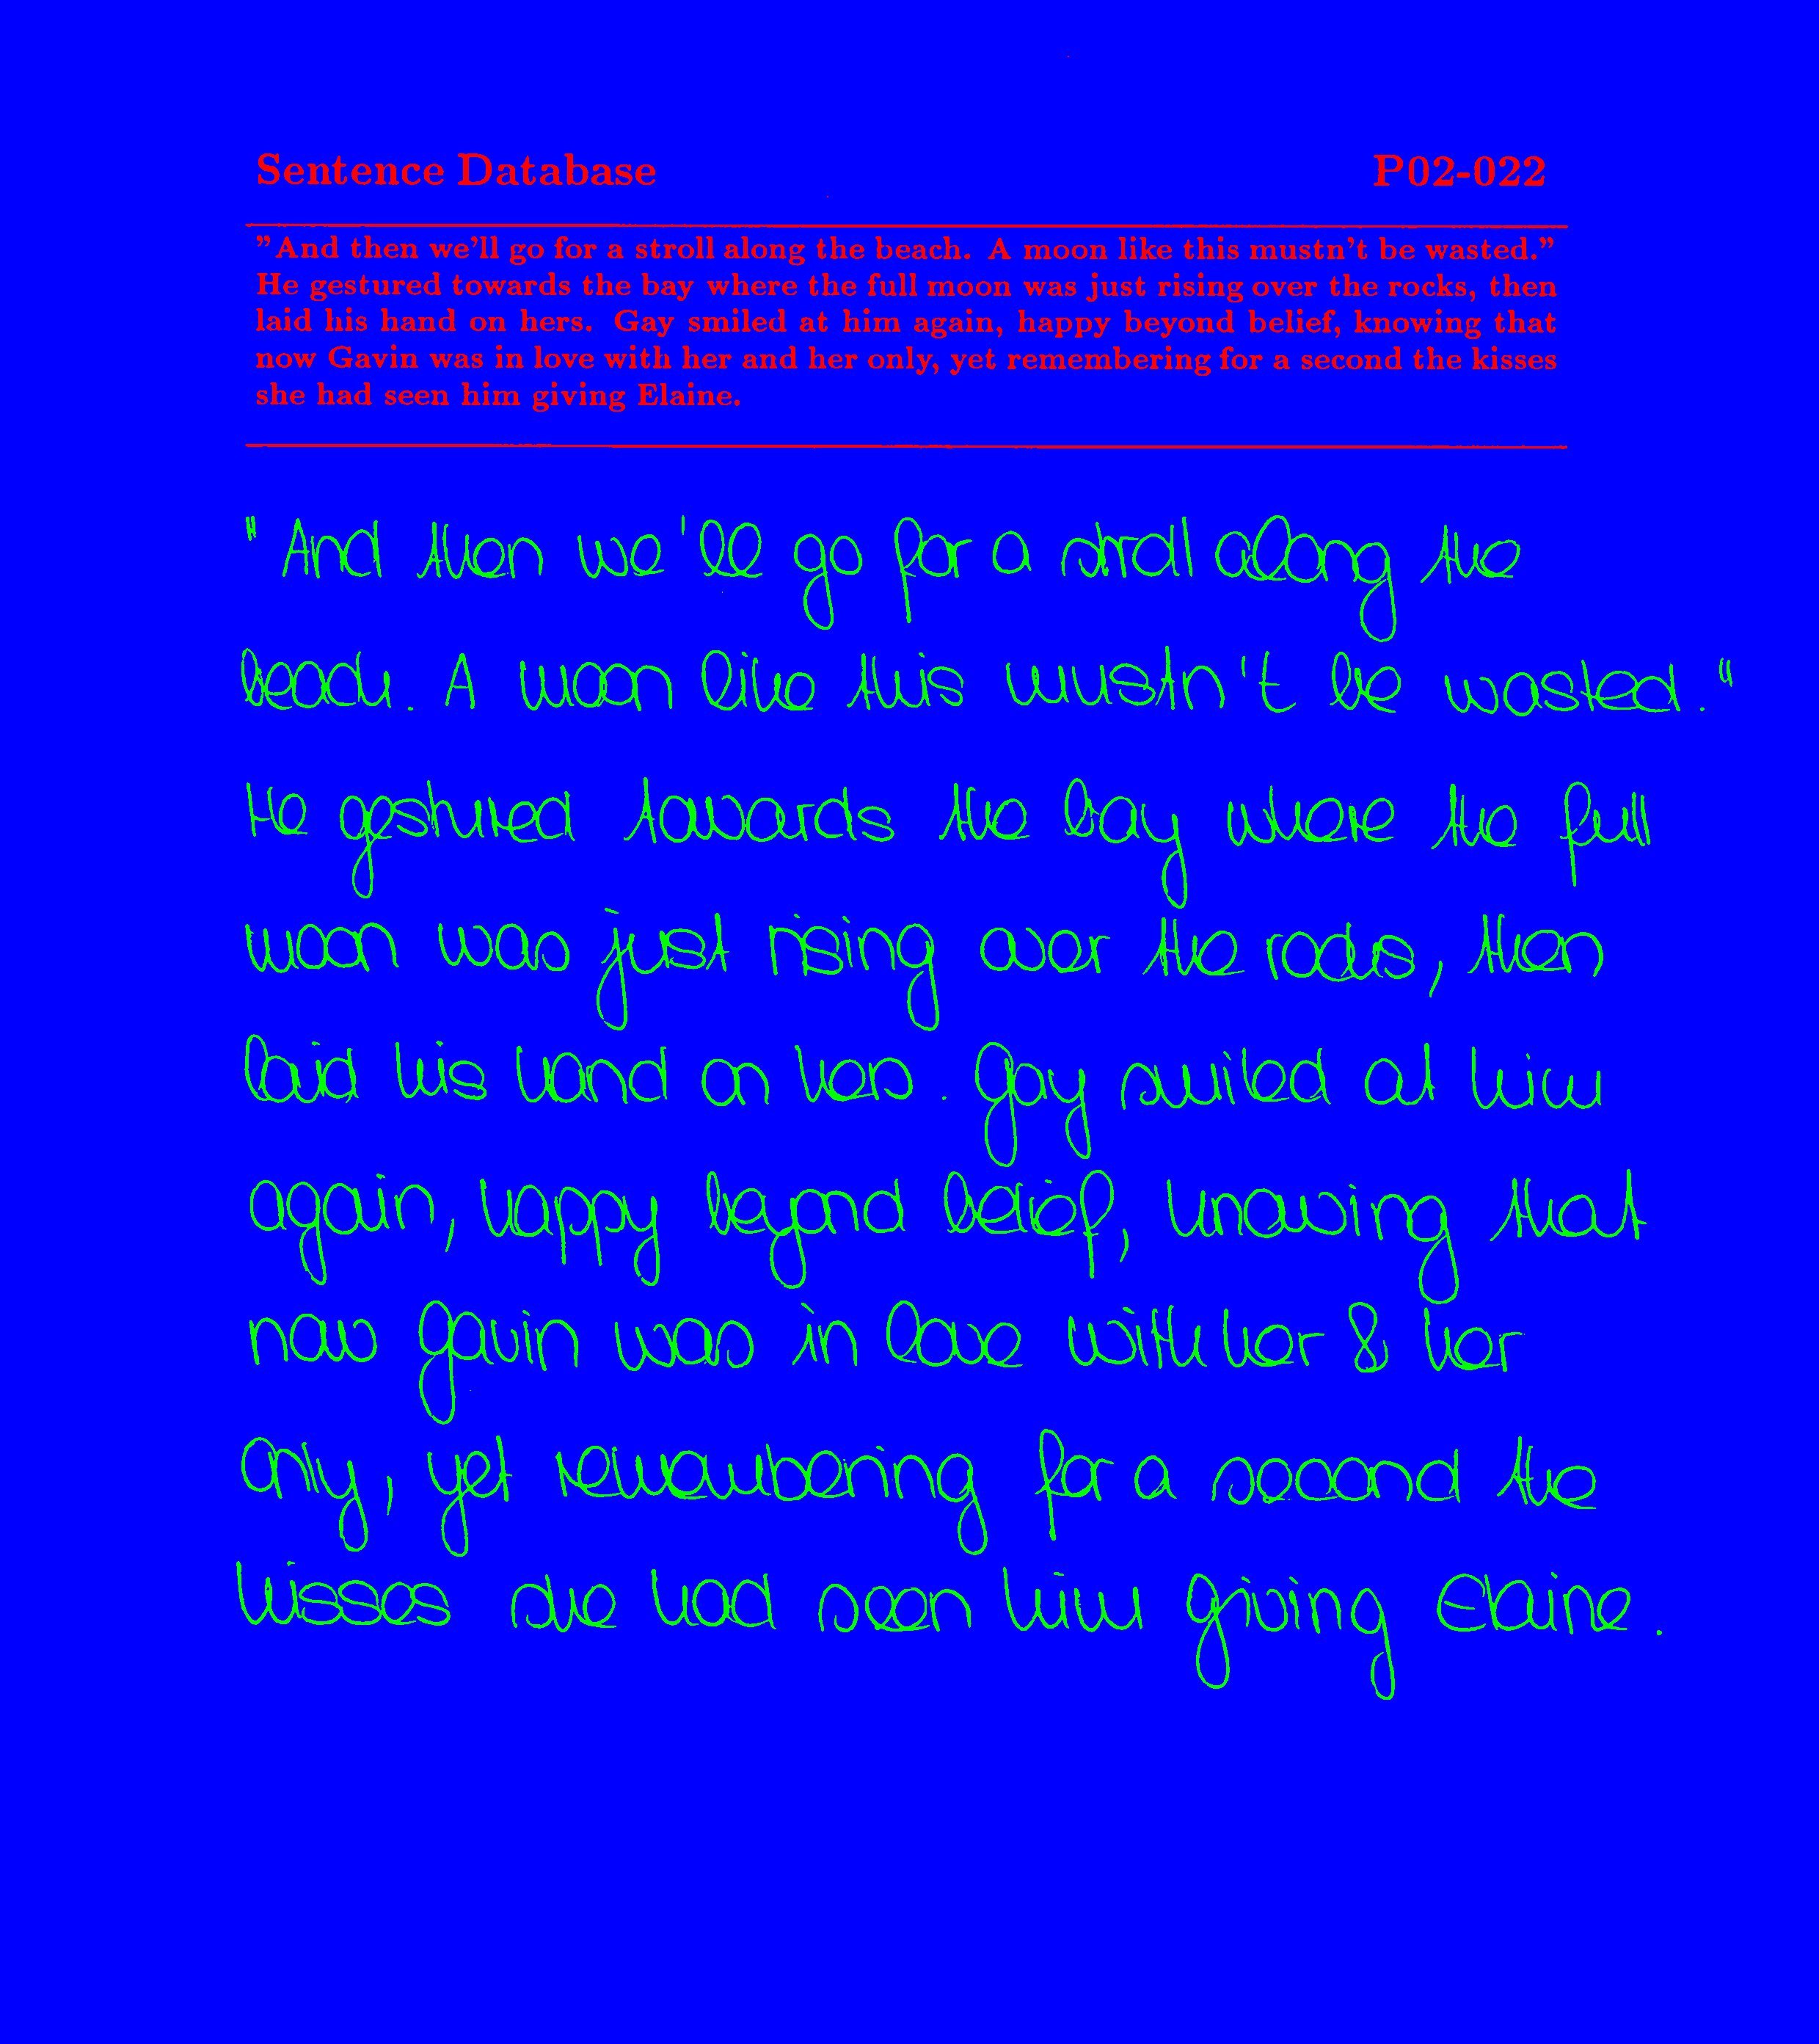 Sentence Database P02-022
"And then we'll go for a stroll along the beach. A moon like this mustn't be wasted."
He gestured towards the bay where the full moon was just rising over the rocks, then
laid his hand on hers. Gay smiled at him again, happy beyond belief, knowing that
now Gavin was in love with her and her only, yet remembering for a second the kisses
she had seen him giving Elaine.
"And then we'll go for a stroll along the
beach. A moon like this mustn't be wasted."
He gestured towards the bay where the full
moon was just rising over the rocks, then
laid his hand on hers. Gay smiled at him
again, happy beyond belief, knowing that
now Gavin was in love with her & her
only, yet remembering for a second the
kisses she had seen him giving Elaine.